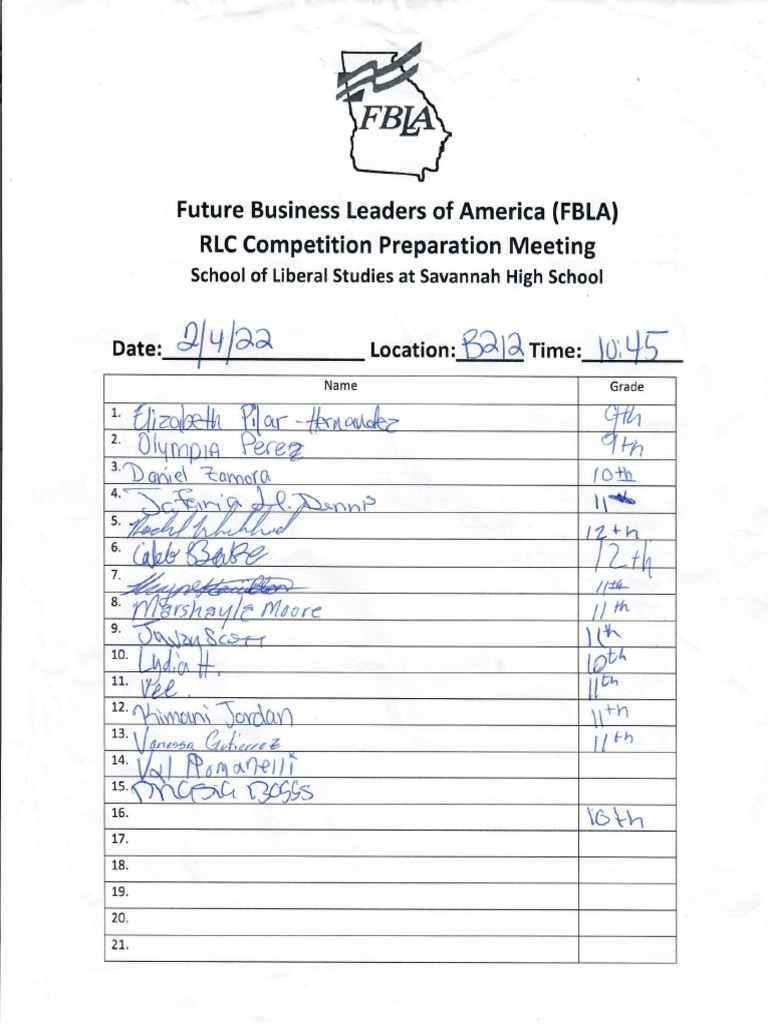 FBLA
Future Business Leaders of America (FBLA)
RLC Competition Preparation Meeting
School of Liberal Studies at Savannah High School
Date: 2/4/22 Location: B212 Time: 10:45
Name Grade
1. Elizabeth Pilar-Hernandez 9th
2. Olympia Perez 9th
3. Daniel Zamora 10th
4. Dennis 11
5. 12th
6. Caleb 12th
7. 11th
8. Marshayla Moore 11th
9. Javan Scott 11th
10. Lydia H. 10th
11. Vee 11th
12. Kimani Jordan 11th
13. Vanessa Gutierrez 11th
14. Val Romanelli
15. Boggs
16. 10th
17.
18.
19.
20.
21.